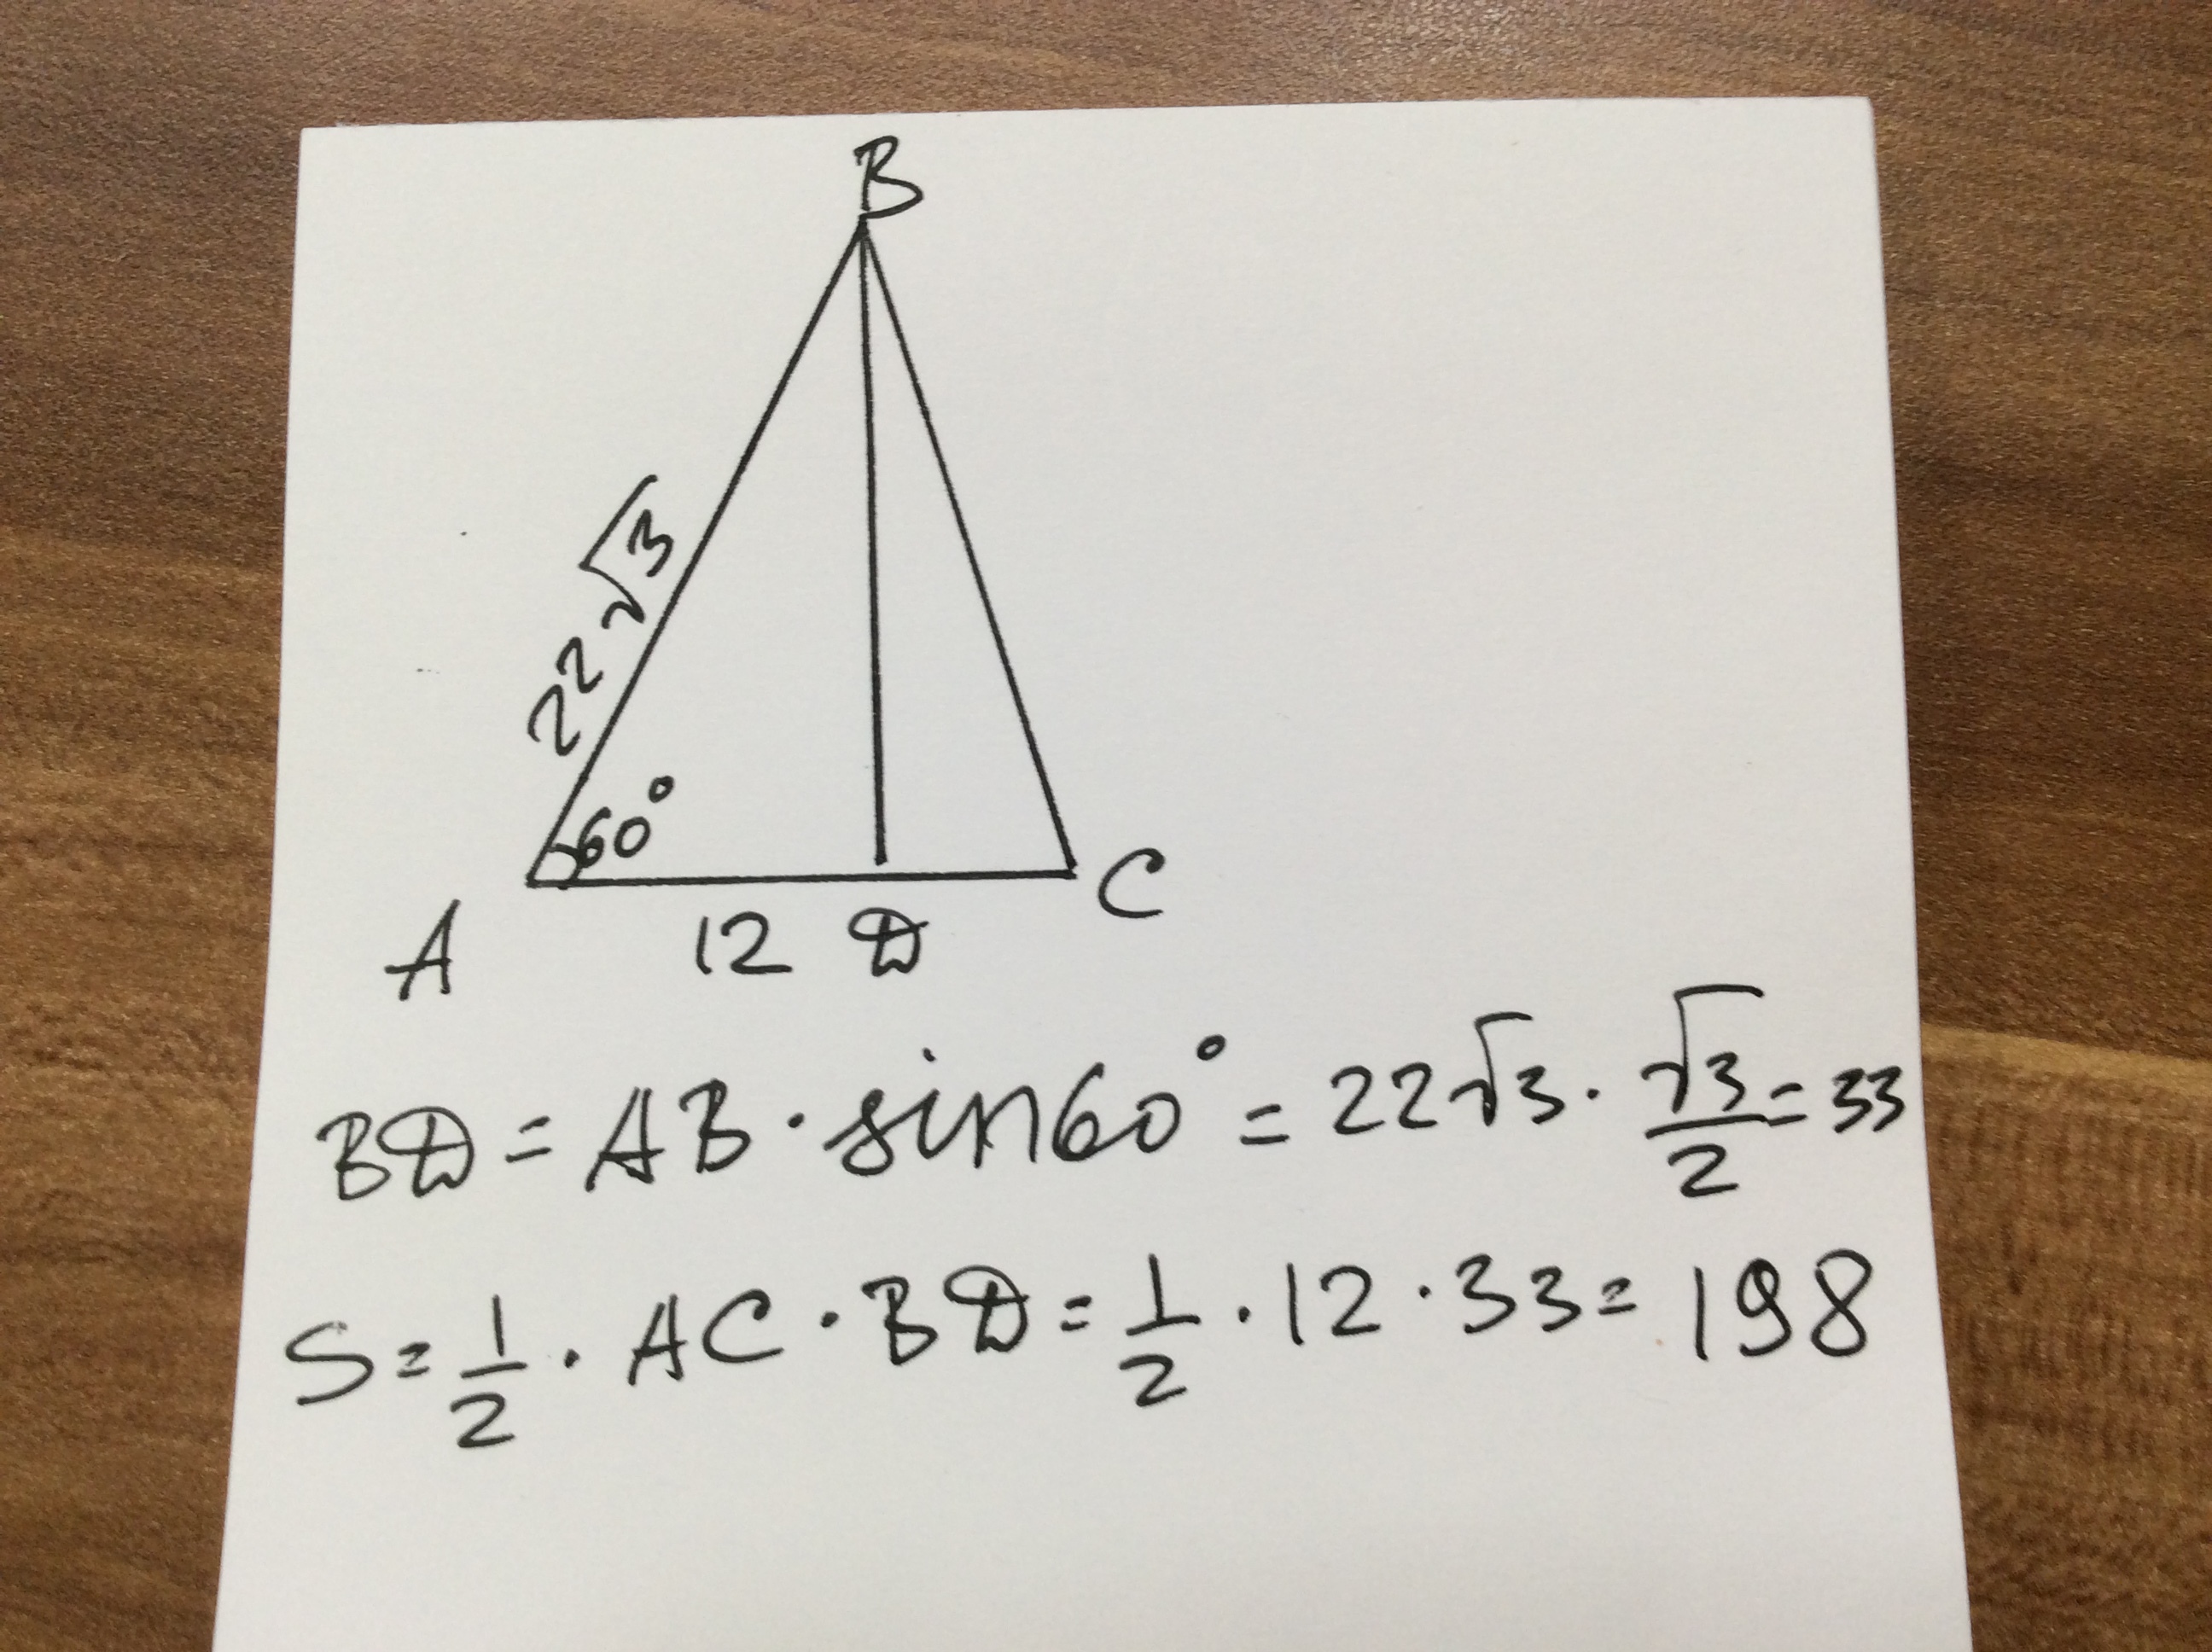 B
22√3
60°
A 12 D C
BD = AB · sin60° = 22√3 · √3/2 = 33
S = 1/2 · AC · BD = 1/2 · 12 · 33 = 198